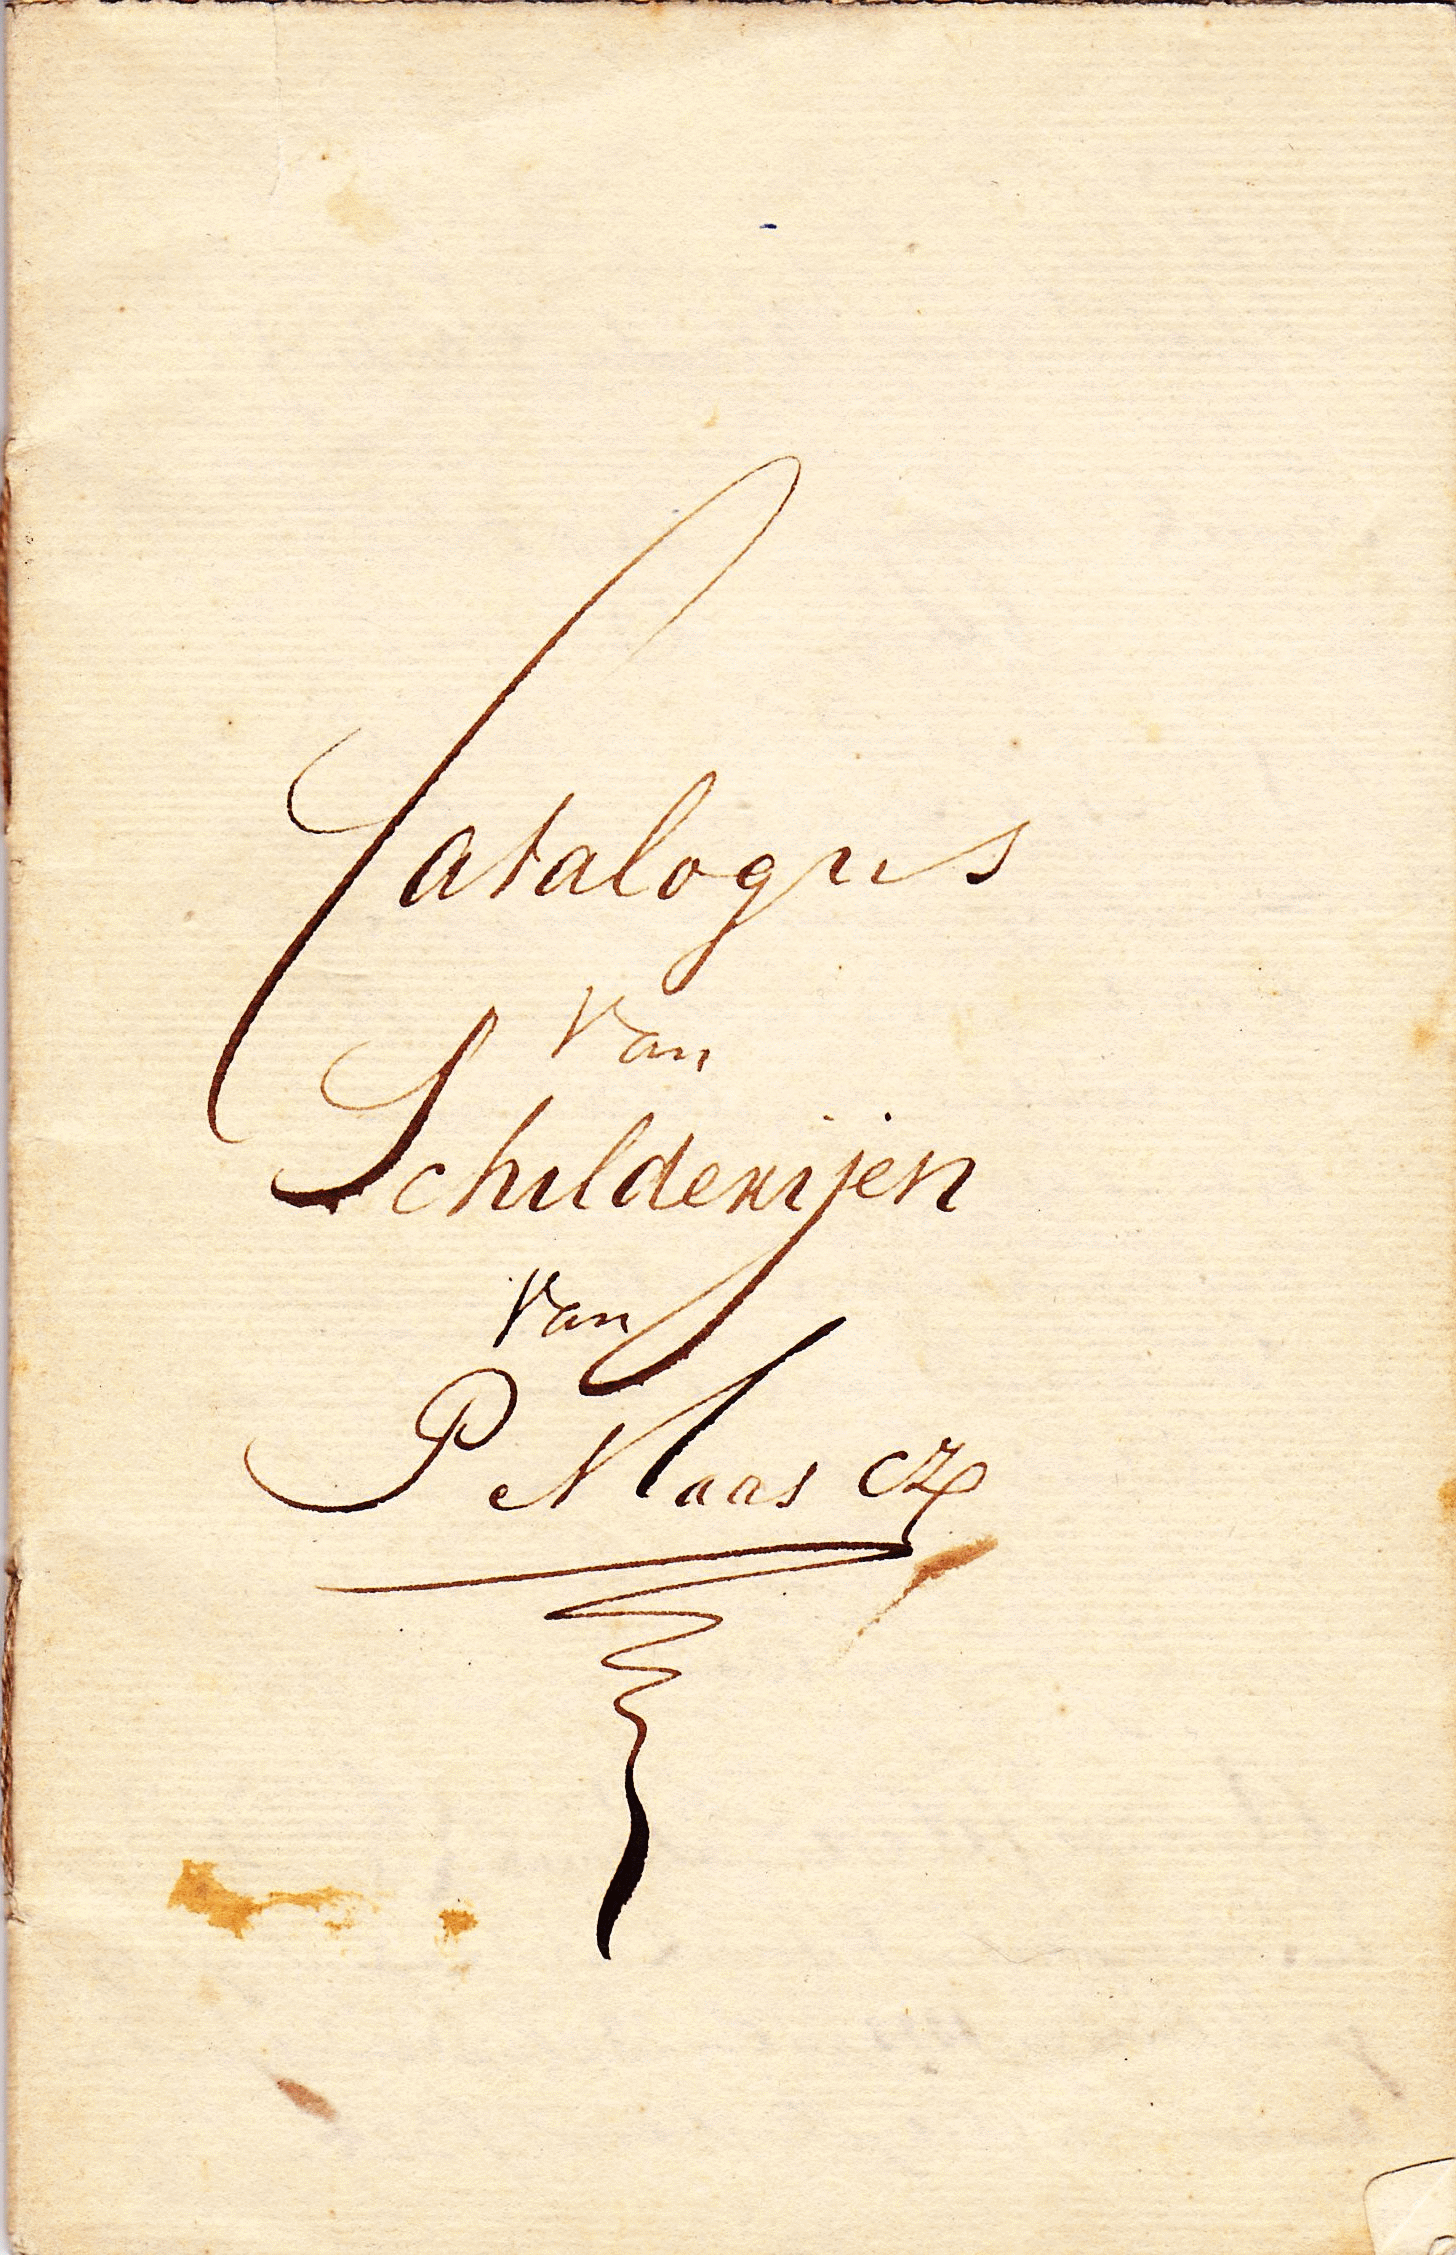 Catalogus
Van
Schilderijen
Van
P Maas CZ